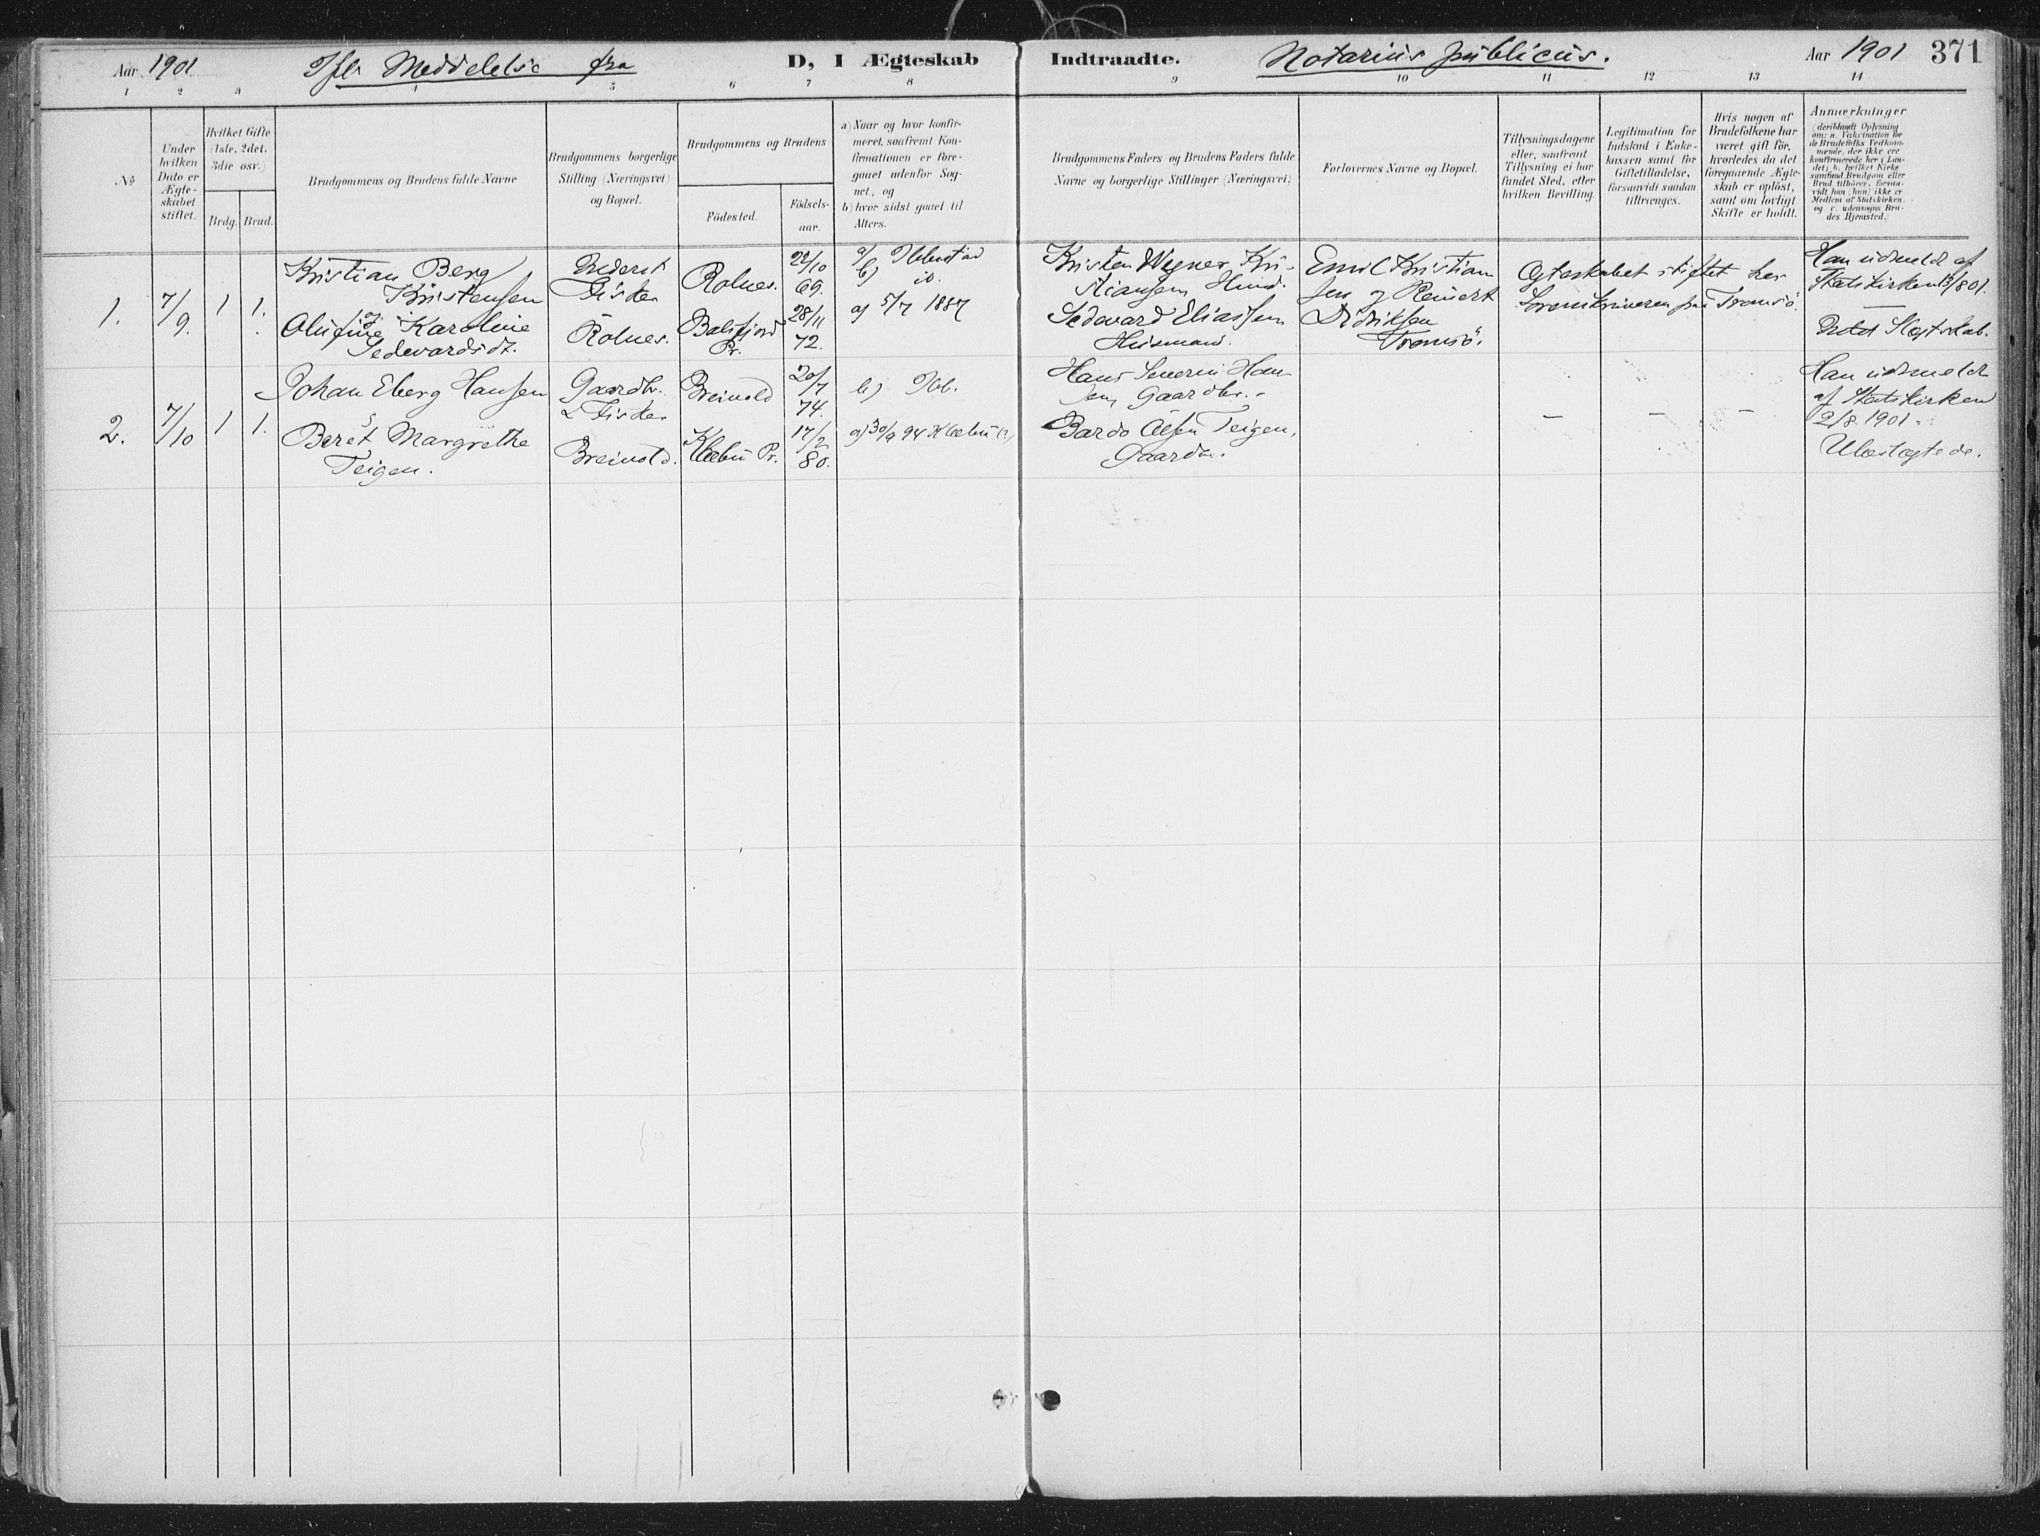 Aar 1901
Ifl. Meddelelse fra
D, I Ægteskab Indtraadte.
Notarius publicus.
Aar 1901
371
1 2 3 4 5 6 7 8 9 10 11 12 13 14
No
Under
hvilken
Dato er
Ægte-
skabet
stiftet.
Hvilket Gifte
(1ste, 2det,
3die osv.)
Brdg. Brud.
Brudgommens og Brudens fulde Navne
Brudgommens borgerlige
Stilling (Næringsvei)
og Bopæl.
Brudgommens og Brudens
Fødested.
Fødsels-
aar.
a) Naar og hvor konfir-
meret, saafremt Kon-
firmationen er fore-
gaaet udenfor Sog-
net, og
b) hvor sidst gaaet til
Alters.
Brudgommens Faders og Brudens Faders fulde
Navne og borgerlige Stillinger (Næringsvei)
Forlovernes Navne og Bopæl.
Tillysningsdagene
eller, saafremt
Tillysning ei har
fundet Sted, efter
hvilken Bevilling.
Legitimation for
Indskud i Enke-
kassen samt for
Giftetilladelse,
forsaavidt saadan
tiltrænges.
Hvis nogen af
Brudefolkene har
været gift før,
hvorledes da det
foregaaende Ægte-
skab er opløst,
samt om lovligt
Skifte er holdt.
Anmærkninger
(deriblandt Oplysning
om: a. Vakcination for
de Brudefolks Vedkom-
mende, der ikke ere
konfirmerede her i Lan-
det; b. hvilket Kirke
samfund Brudgom eller
Brud tilhører, forsaa-
vidt han (hun) ikke er
Medlem af Statskirken,
og c. udensogns Bru-
des Hjemsted.)
1.
7/9
1 1.
Kristian Berg
Kristensen
og
Olufine Karoline
Sedevardsdt.
Fisker
Rolnes.
Rolnes.
Balsfjord
Pr.
22/10
69.
28/11
72.
a/ Ibbestad
b) ib.
a) 5/7 1887
Kristen Wegner Kri-
stiansen Husmd.
Sedevard Eliassen
Husmand.
Emil Kristian
sen og Reinert
Didriksen
Tromsö.
Ægteskabet stiftet hos
Sorenskriveren fra Tromsö.
Han udmeldt af
Statskirken 13/8 01.
Intet Slægtskab.
2.
7/10
1 1.
Johan Eberg Hansen
Beret Margrethe
Teigen.
Gaardbr.
& Fisker
Breivold.
Breivold
Klæbu Pr.
20/7
74.
17/2
80.
b) Ibb.
a) 30/9 94 Klæbu
Hans Severin Han
sen, Gaardbr.
Bardo Olsen Teigen,
Gaardbr.
– – –
Han udmeldt
af Statskirken
2/8 1901.
Ubeslægtede.